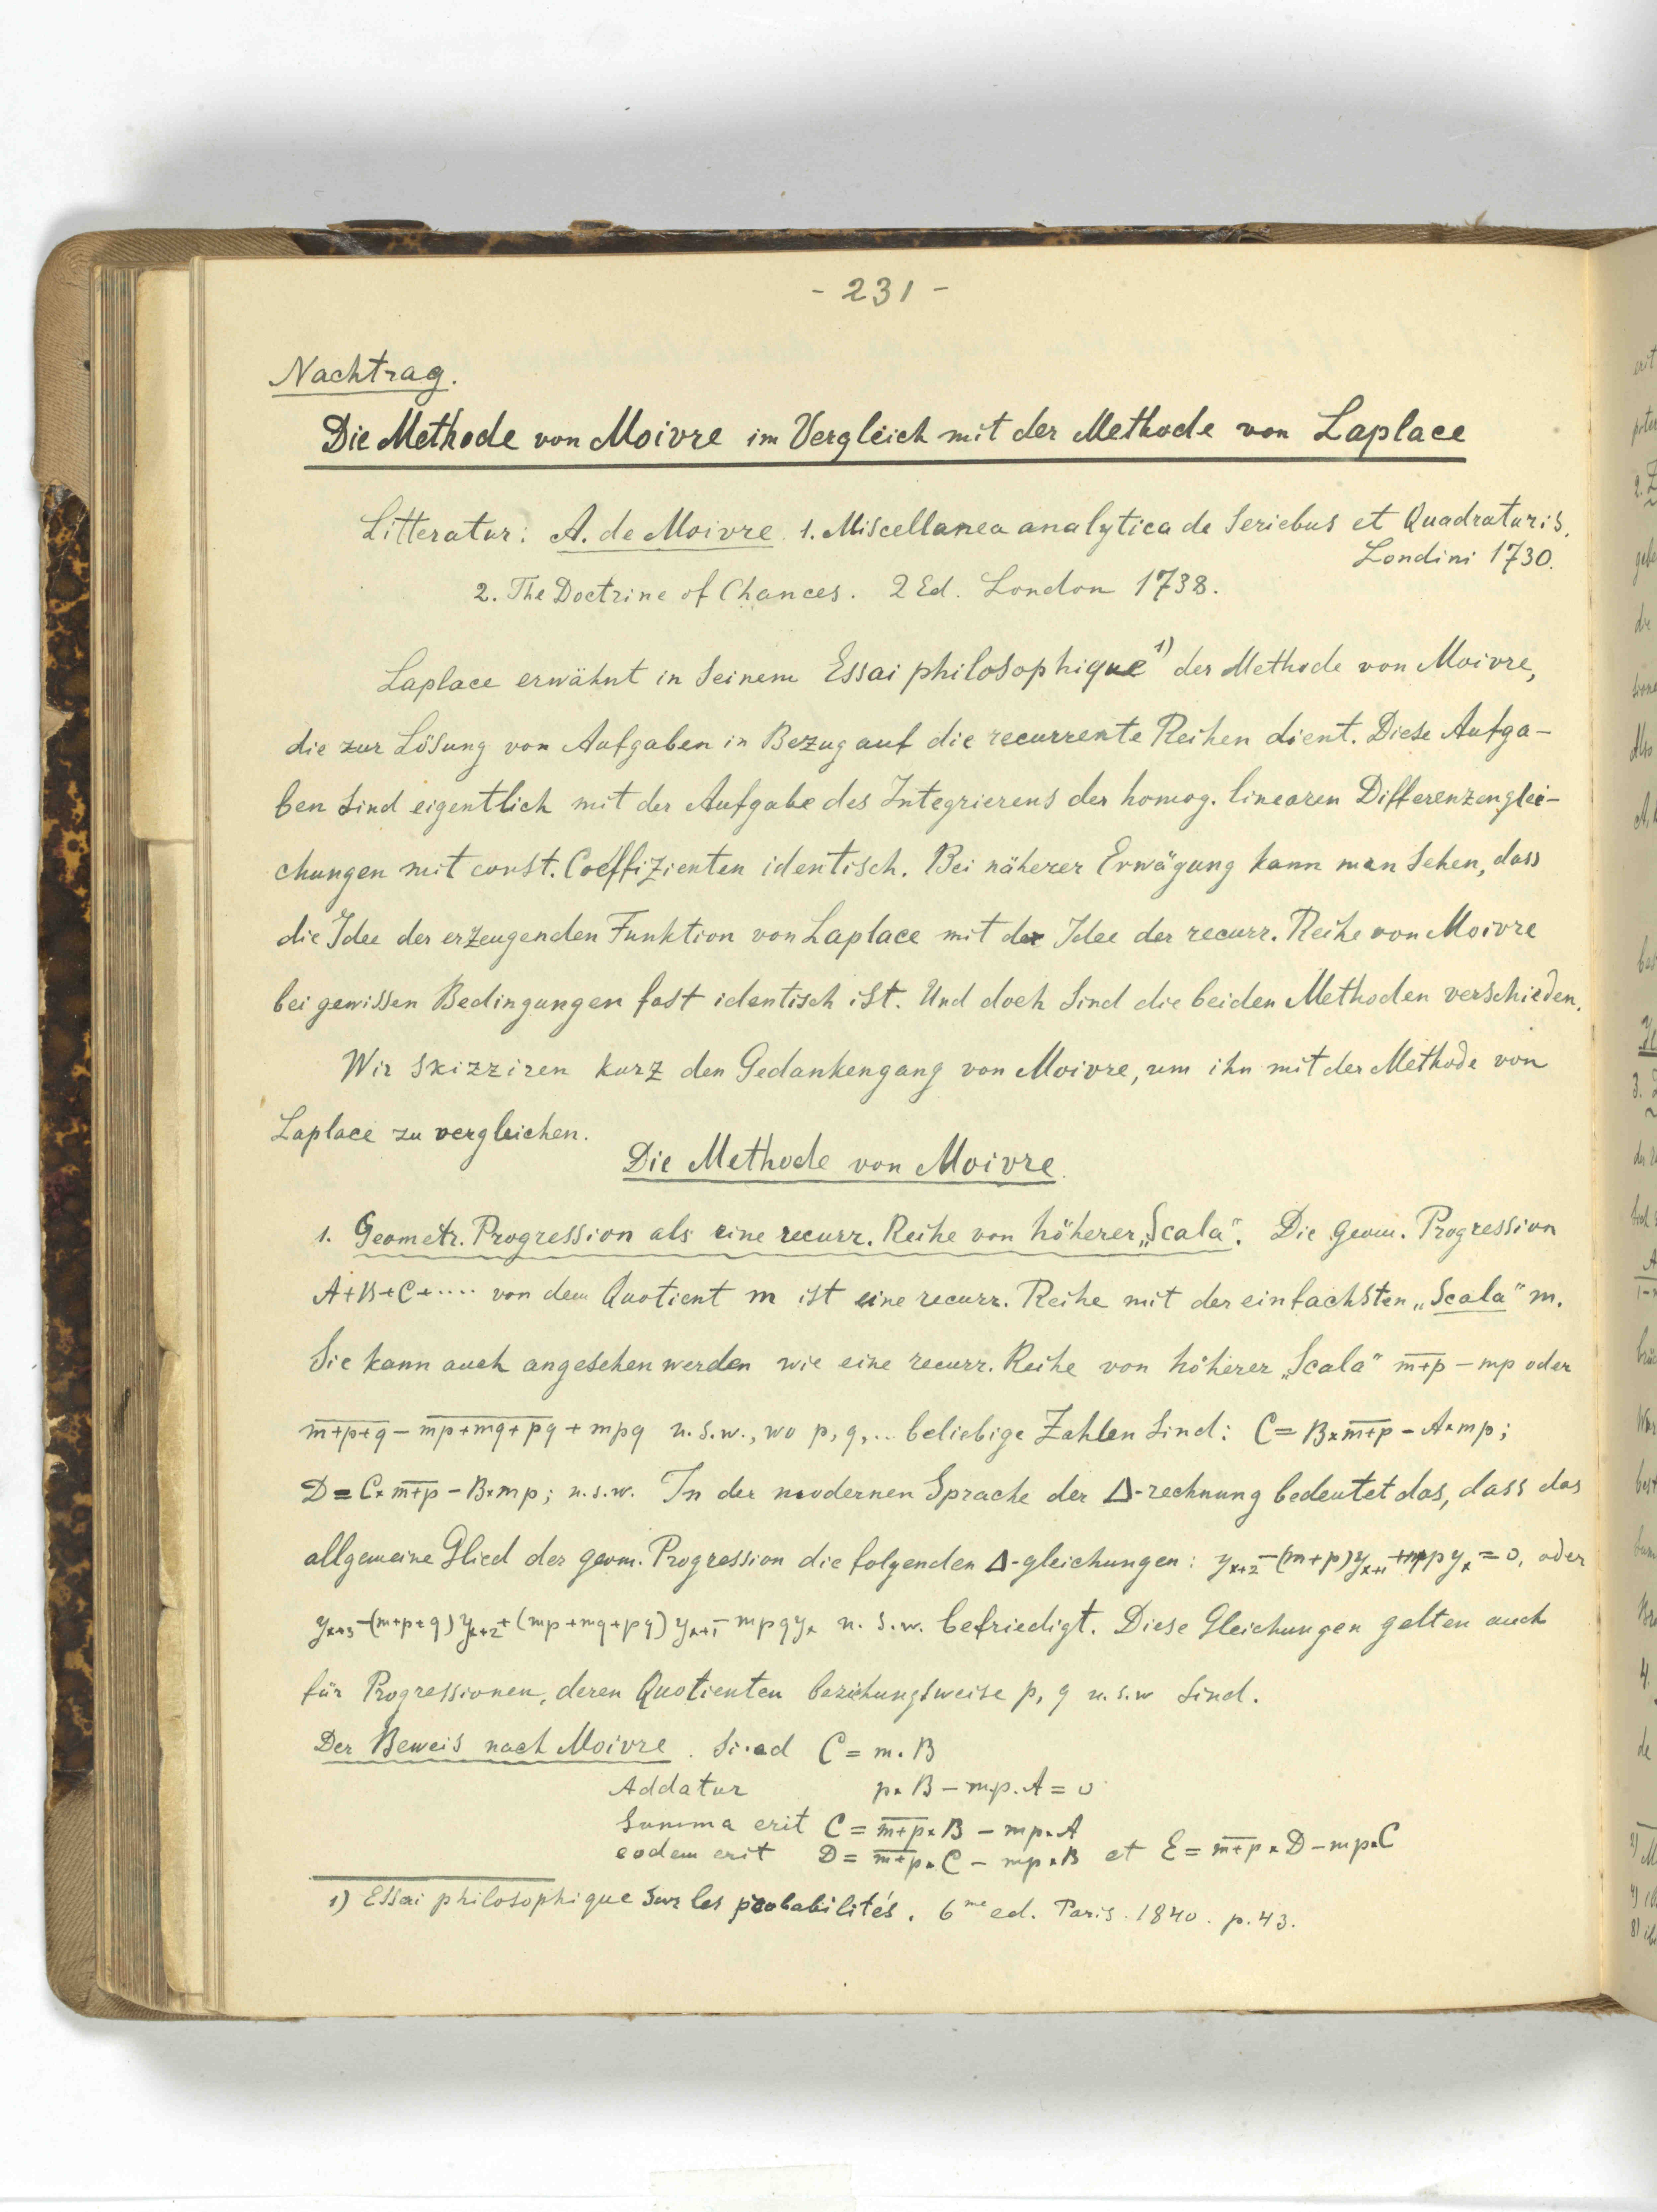 - 231 -
Nachtrag.
Die Methode von Moivre im Vergleich mit der Methode von Laplace
Litteratur: A. de Moivre 1. Miscellanea analytica de Seriebus et Quadraturis.
Londini 1730.
2. The Doctrine of Chances. 2 Ed. London 1738.
Laplace erwähnt in seinem Essai philosophique 1) der Methode von Moivre,
die zur Lösung von Aufgaben in Bezug auf die recurrente Reihen dient. Diese Aufga-
ben sind eigentlich mit der Aufgabe des Integrierens der homog. linearen Differenzenglei-
chungen mit const. Coeffizienten identisch. Bei näherer Erwägung kann man sehen, dass
die Idee der erzeugenden Funktion von Laplace mit der Idee der recurr. Reihe von Moivre
bei gewissen Bedingungen fast identisch ist. Und doch sind die beiden Methoden verschieden.
Wir skizziren kurz den Gedankengang von Moivre, um ihn mit der Methode von
Laplace zu vergleichen.
Die Methode von Moivre.
1. Geometr. Progression als eine recurr. Reihe von höherer „Scala". Die geom. Progression
A+B+C+.... von dem Quotient m ist eine recurr. Reihe mit der einfachsten „Scala" m.
Sie kann auch angesehen werden wie eine recurr. Reihe von höherer „Scala" m̅+̅p̅ - mp oder
m̅+̅p̅+̅q̅ - m̅p̅+̅m̅q̅+̅p̅q̅ + mpq u.s.w., wo p, q,.. beliebige Zahlen sind: C = B×m̅+̅p̅ - A×mp;
D = C×m̅+̅p̅ - B×mp; u.s.w. In der modernen Sprache der Δ-rechnung bedeutet das, dass das
allgemeine Glied der geom. Progression die folgenden Δ-gleichungen: yₓ₊₂-(m+p)yₓ₊₁+mpyₓ=0, oder
yₓ₊₃-(m+p+q)yₓ₊₂+(mp+mq+pq)yₓ₊₁-mpqyₓ u.s.w. befriedigt. Diese Gleichungen gelten auch
für Progressionen, deren Quotienten beziehungsweise p, q u.s.w sind.
Der Beweis nach Moivre. C = m.B
Addatur p×B - m.p.A = 0
Summa erit C = m̅+̅p̅×B - mp×A
eodem erit D = m̅+̅p̅×C - mp×B et E = m̅+̅p̅×D - mp×C
1) Essai philosophique sur les probabilités. 6me ed. Paris. 1840. p. 43.